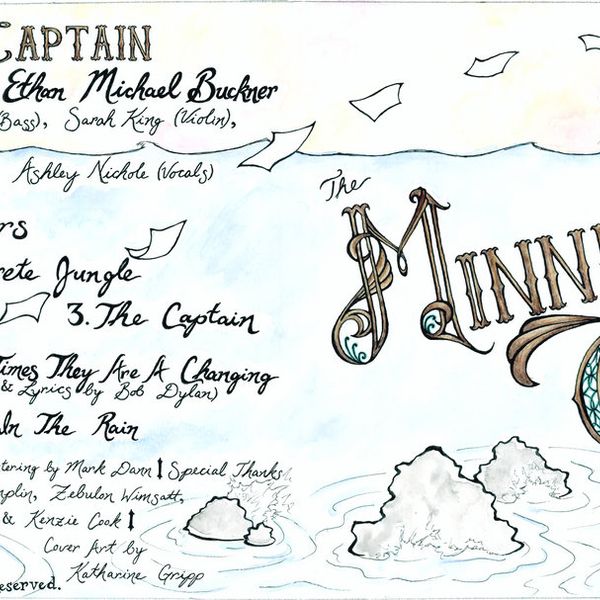 Captain
Ethan Michael Buckner
(Bass), Sarah King (Violin),
Ashley Nichole (Vocals)
The
Minn
rs
rete Jungle
3. The Captain
Times They Are A Changing
& Lyrics by Bob Dylan)
In The Rain
tering by Mark Dann | Special Thanks
mplin, Zebulon Wimsatt,
& Kenzie Cook |
Cover Art by
Katharine Gripp
eserved.